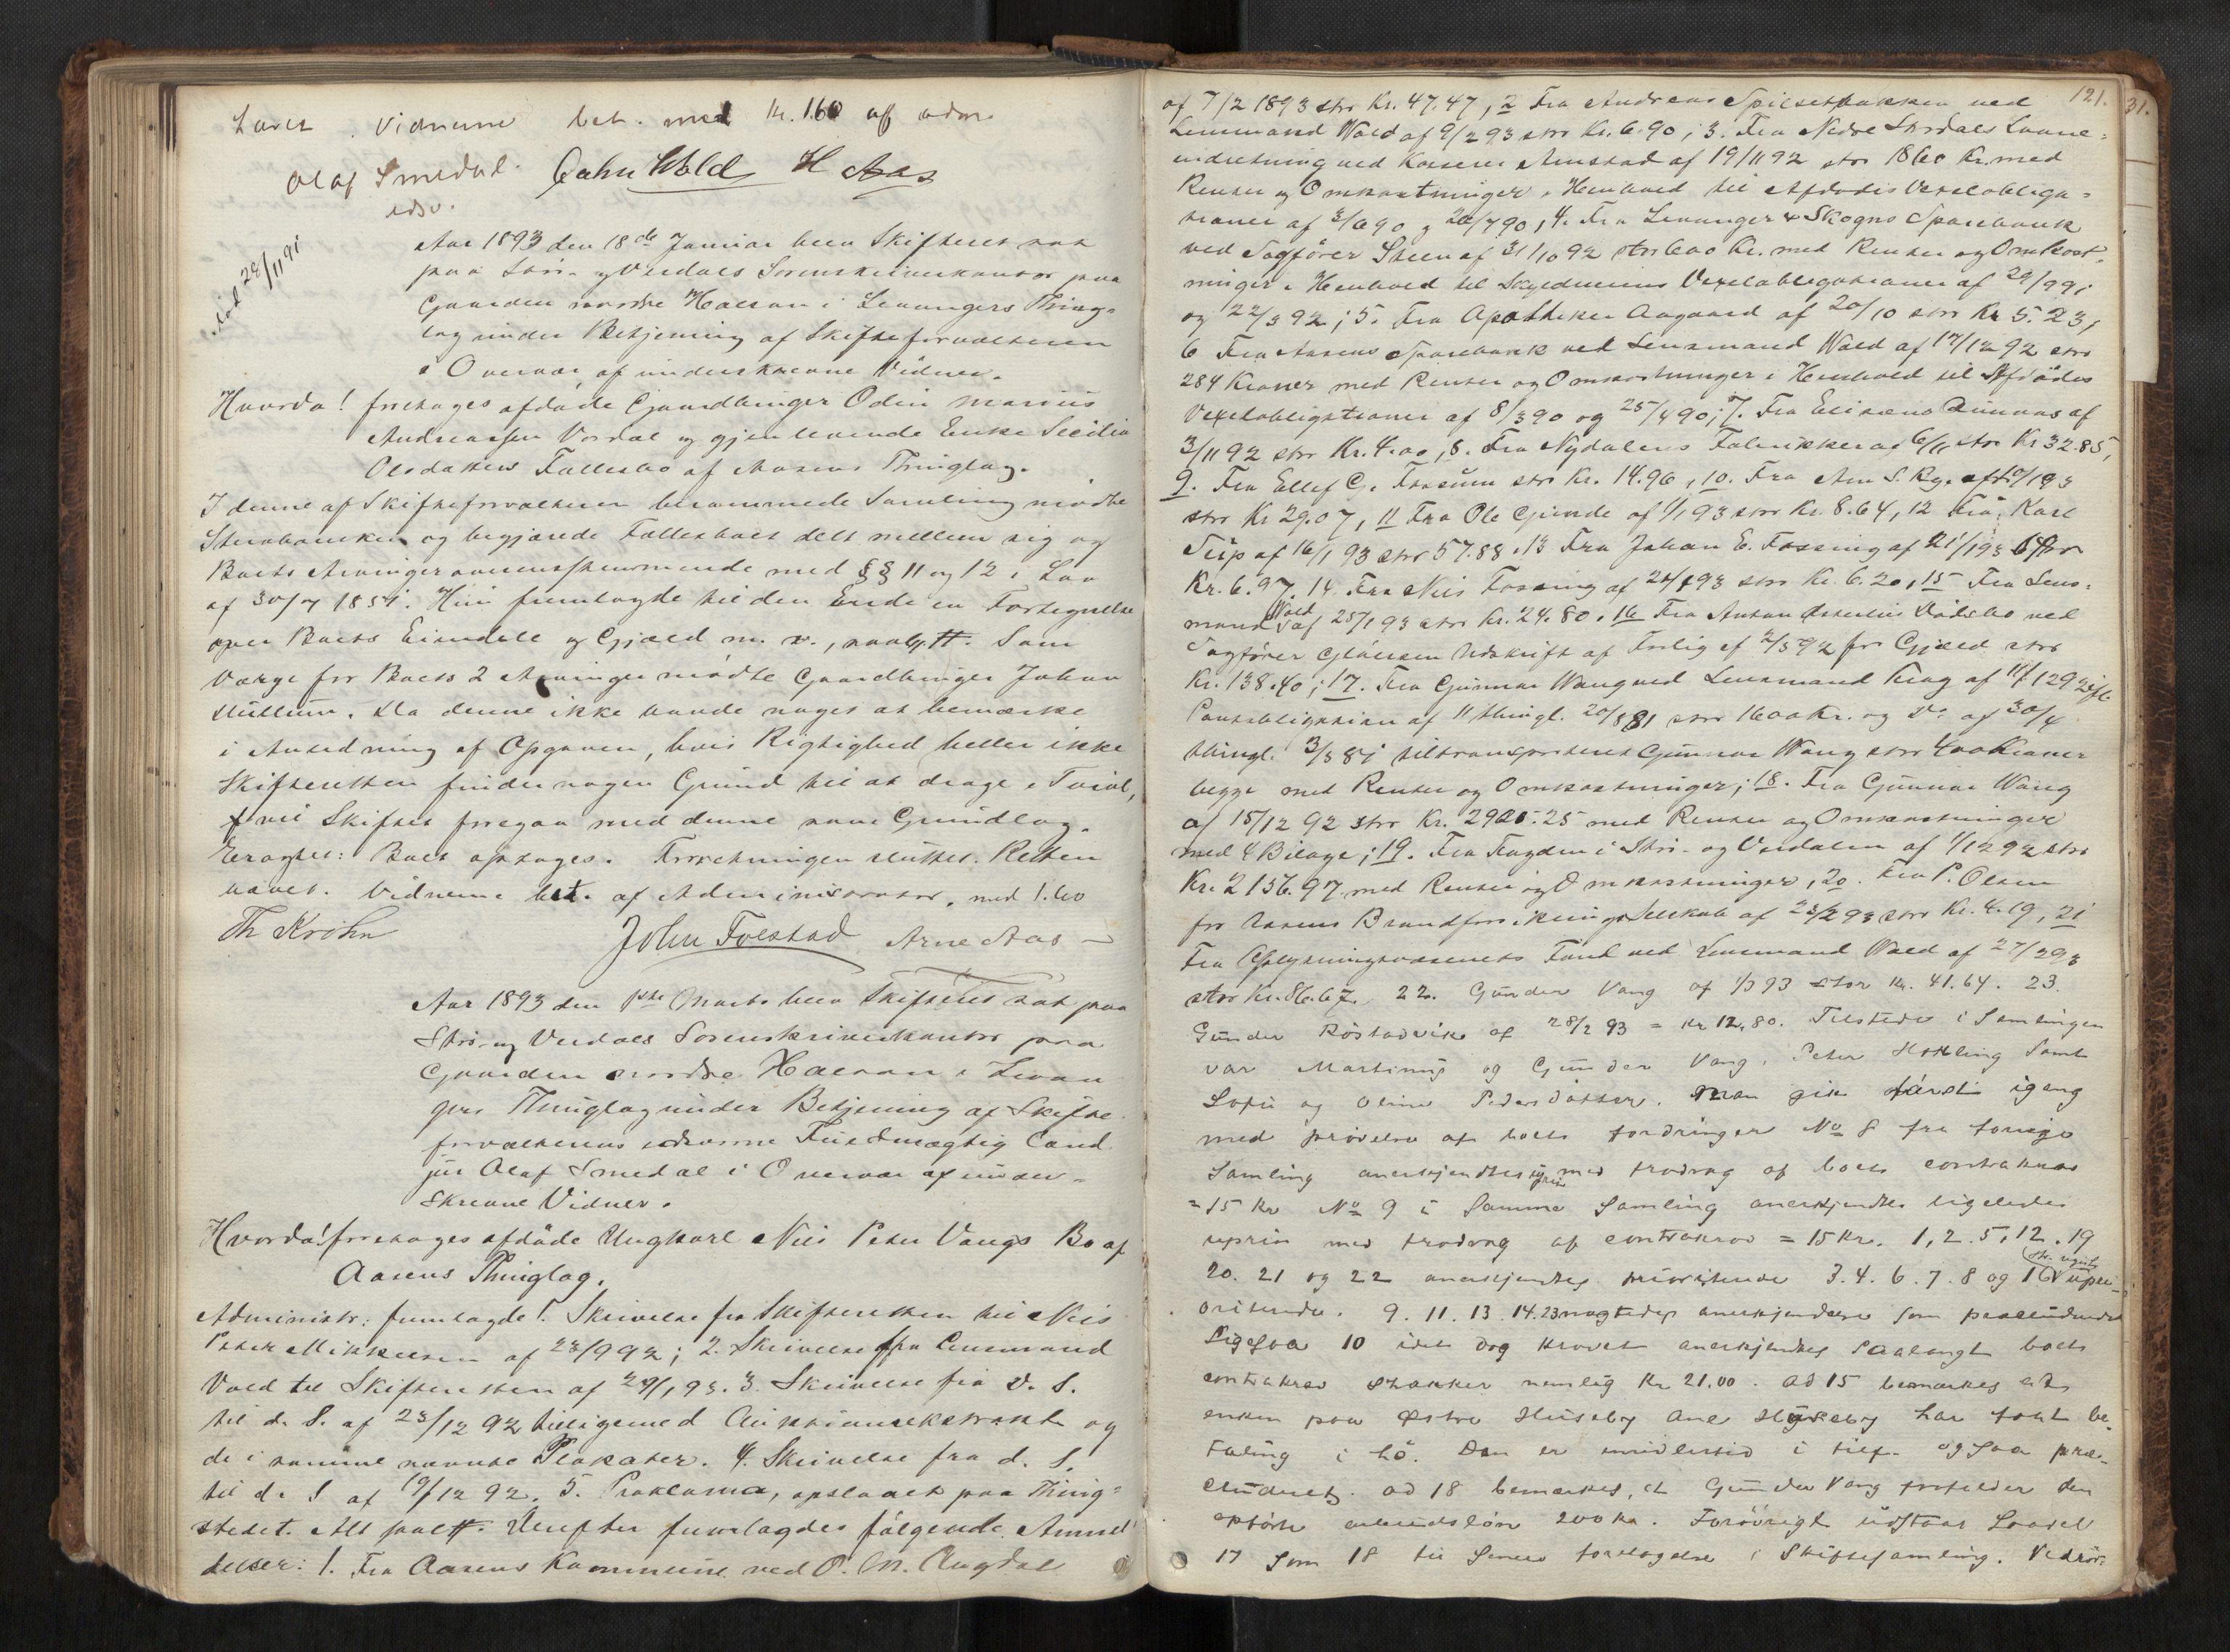 Vidnerne bet. med Kr. 1.60 af adm.
Olaf Smedal. Wold H Aas
edsv.
død 28/11 91
Aar 1893 den 18de Januar blev Skifteret sat
paa Stør- og Verdals Sorenskriverkontor paa
Gaarden nordre Halsan i Levangers Thing-
lag under Betjening af Skifteforvalteren
i Overvær af underskrevne Vidner.
Hvorda! foretoges afdøde Gaardbruger Odin Marius
Andreassen Vordal og gjenlevende Enke Secilia
Olsdatters Fællesbo af Aasens Thinglag.
I denne af Skifteforvalteren berammede Samling mødte
Sterboenken og begjærede Fællesboet delt mellem sig og
Boets Arvinger overensstemmende med §§ 11 og 12 i Lov
af 30/7 1851. Hun fremlagde til den Ende en Fortegnelse
over Boets Eiendele og Gjæld m. v., saalyd. #. Som
Værge for Boets 2 Arvinger mødte Gaardbruger Johan
Da denne ikke havde noget at bemærke
i Anledning af Opgaven, hvis Rigtighed heller ikke
Skifteretten finder nogen Grund til at drage i Tvivl,
vil Skiftet foregaa med denne som Grundlag.
Eragtet: Boet optages. Forretningen sluttet. Retten
hævet. Vidnerne bet. af Administrator, med 1.60
Th Krohn John Folstad Arne Aas
Aar 1893 den 1ste Marts blev Skifteret sat paa
Stør- og Verdals Sorenskriverkontor paa
Gaarden nordre Halsan i Levan-
gers Thinglag under Betjening af Skifte-
forvalterens edsvorne Fuldmægtig Cand.
jur Olaf Smedal i Overvær af under-
skrevne Vidner.
Hvorda! foretoges afdøde Ungkarl Nils Peter Vangs Bo af
Aasens Thinglag.
Administr: fremlagde 1. Skrivelse fra Skifteretten til Nils
Peter Mikkelsen af 23/9 92; 2. Skrivelse fra Lensmand
Vold til Skifteretten af 29/1 93. 3. Skrivelse fra D. S.
til d. S. af 23/12 92 tilligemed Auktionsekstrakt og
de i samme nævnte Plakater. 4. Skrivelse fra d. S.
til d. S af 19/12 92. 5. Proklama, opslaaet paa Thing-
stedet. Alt saal #. Derefter fremlagdes følgende Anmel-
delser: 1. Fra Aasens Kommune ved O. M. Angdal
121.
31.
af 7/2 1893 stor Kr. 47.47, 2 Fra Andreas ved
Lensmand Wold af 9/2 93 stor Kr. 6.90; 3. Fra Nedre Størdals Laane-
indretning ved Kasserer Arnstad af 19/11 92 stor 1860 Kr. med
Renter og Omkostninger i Henhold til Afdødes Vexelobliga-
tioner af 3/6 90 og 26/7 90, 4. Fra Levanger & Skogns Sparebank
ved Sagfører Steen af 31/10 92 stor 600 Kr. med Renter og Omkost-
ninger i Henhold til Skyldnerens Vexelobligationer af 29/9 91
og 22/3 92; 5. Fra Apotheker Aagaard af 20/10 stor Kr 5.23;
6 Fra Aasens Sparebank ved Lensmand Wold af 17/12 92 stor
284 Kroner med Renter og Omkostninger i Henhold til Afdødes
Vexelobligationer af 8/3 90 og 25/4 90; 7. Fra af
3/11 92 stor Kr. 4.00, 8. Fra Nydalens Fabrikker af 6/11 stor Kr 32.85,
9. Fra Ellef G. Fossum stor Kr. 14.96, 10. Fra Arn S. Ry. af 10/1 93
stor Kr 29.07, 11 Fra Ole Gjevde af 1/1 93 stor Kr. 8.64, 12 Fra Karl
af 16/1 93 stor 57.88. 13 Fra Johan E. Fossing af 21/1 93 stor
Kr. 6.97. 14 Fra Nils Fossing af 21/1 93 stor Kr. 6.20, 15 Fra Lens-
mand Vold af 25/1 93 stor Kr. 24.80. 16 Fra Anton ved
Sagfører Udskrift af Forlig af 2/5 92 for Gjæld stor
Kr. 138.40; 17. Fra Gunnar Wang ved Lensmand af 11/12 92 ifl.
Pantobligation af 11 thingl. 20/8 81 stor 1600 Kr. og Do af 30/4
thingl. 3/5 87 tiltransporteret Gunnar Wang stor 400 Kroner
begge med Renter og Omkostninger; 18. Fra Gunnar Wang
af 15/12 92 stor Kr. 2925.25 med Renter og Omkostninger
med 4 Bilage; 19. Fra Fogden i Stør- og Verdalen af 1/12 92 stor
Kr. 2156.97 med Renter og Omkostninger, 20. Fra P. Olsen
for Aasens Brandforsikringsselskab af 23/2 93 stor Kr. 4.19, 21
Fra Oplysningsvæsenets Fond ved Lensmand Wold af 27/2 93
stor Kr. 86.67. 22. Gunder Vang af 1/3 93 stor Kr. 41.64. 23.
Gunder Røstadvik af 28/2 93 = Kr 12.80. Tilstede i Samlingen
var Martinus og Gunder Vang, Peter Hokling samt
Sofie og Oline Pedersdatter. Man gik først igang
med prøvelse af boets fordringer No 8 fra forrige
Samling anerkjendtes uprior med fradrag af boets contrakrav
= 15 Kr No 9 i samme Samling anerkjendtes ligeledes
uprior med fradrag af contrakrav = 15 Kr. 1, 2. 5, 12. 19
20. 21 og 22 anerkjendtes prioriterede 3. 4. 6. 7. 8 og 16 upri-
oriterede. 9. 11. 13. 14. 23 nægtedes anerkjendelse som præcluderet
Ligesaa 10 idet dog kravet anerkjendtes saalangt boets
contrakrav strækker nemlig Kr 21.00. Ad 15 bemærkes at
enken paa Østre Huseby Ane Huseby har faat be-
taling i hø. Den er imidlertid i tilf. ogsaa præ-
cluderet. ad 18 bemærkes, at Gunder Vang frafalder den
opførte arbeidsløn 200 Kr. Forøvrigt udstaar saavel
17 som 18 til senere foretagelse i Skiftesamling. Vedrør-